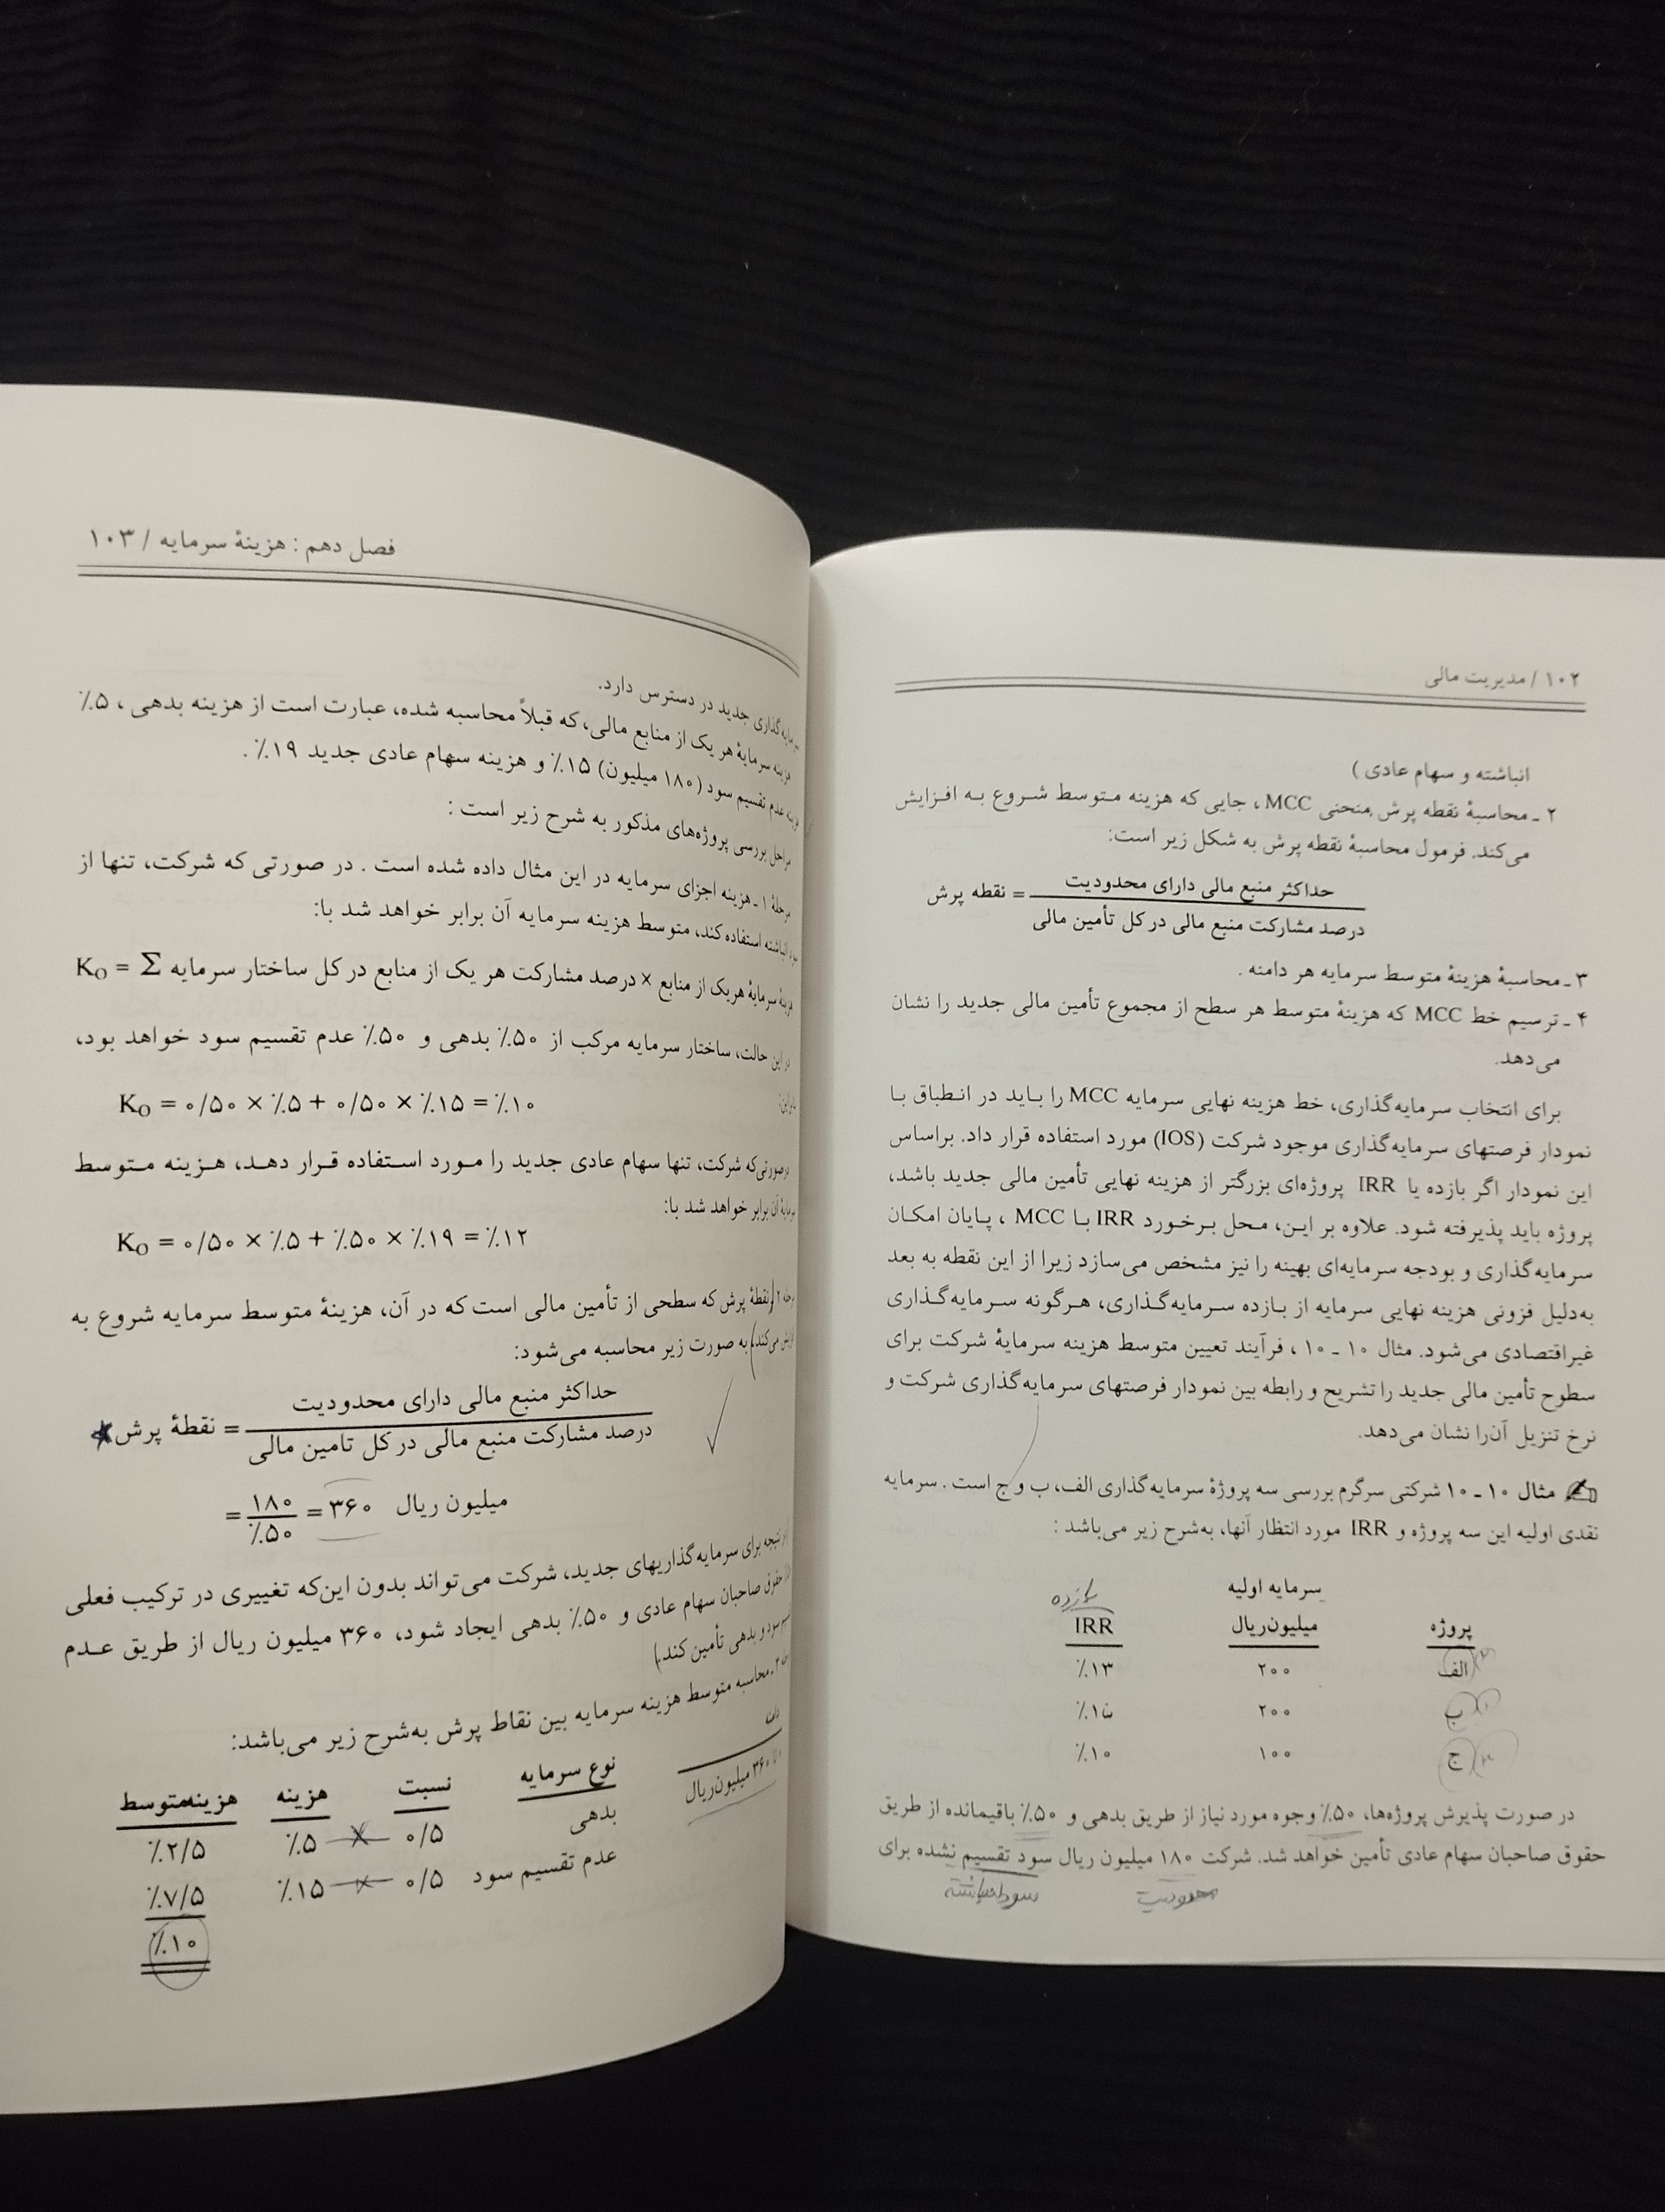 ۱۰۲ / مدیریت مالی
انباشته و سهام عادی )
۲ ـ محاسبهٔ نقطه پرش منحنی MCC، جایی که هزینه متوسط شروع به افزایش
می‌کند. فرمول محاسبهٔ نقطه پرش به شکل زیر است:
حداکثر منبع مالی دارای محدودیت
نقطه پرش =
درصد مشارکت منبع مالی در کل تأمین مالی
۳ ـ محاسبهٔ هزینهٔ متوسط سرمایه هر دامنه .
۴ ـ ترسیم خط MCC که هزینهٔ متوسط هر سطح از مجموع تأمین مالی جدید را نشان
می‌دهد.
برای انتخاب سرمایه‌گذاری، خط هزینه نهایی سرمایه MCC را باید در انطباق با
نمودار فرصتهای سرمایه‌گذاری موجود شرکت (IOS) مورد استفاده قرار داد. براساس
این نمودار اگر بازده یا IRR پروژه‌ای بزرگتر از هزینه نهایی تأمین مالی جدید باشد،
پروژه باید پذیرفته شود. علاوه بر این، محل برخورد IRR با MCC ، پایان امکان
سرمایه‌گذاری و بودجه سرمایه‌ای بهینه را نیز مشخص می‌سازد زیرا از این نقطه به بعد
به‌دلیل فزونی هزینه نهایی سرمایه از بازده سرمایه‌گذاری، هرگونه سرمایه‌گذاری
غیراقتصادی می‌شود. مثال ۱۰ ـ ۱۰ ، فرآیند تعیین متوسط هزینه سرمایهٔ شرکت برای
سطوح تأمین مالی جدید را تشریح و رابطه بین نمودار فرصتهای سرمایه‌گذاری شرکت و
نرخ تنزیل آن‌را نشان می‌دهد.
مثال ۱۰ ـ ۱۰ شرکتی سرگرم بررسی سه پروژهٔ سرمایه‌گذاری الف، ب و ج است . سرمایه
نقدی اولیه این سه پروژه و IRR مورد انتظار آنها، به‌شرح زیر می‌باشد :
سرمایه اولیه بازده
پروژه میلیون‌ریال IRR
الف ۲۰۰ ٪۱۳
ب ۲۰۰ ٪۱۵
ج ۱۰۰ ٪۱۰
در صورت پذیرش پروژه‌ها، ۵۰٪ وجوه مورد نیاز از طریق بدهی و ۵۰٪ باقیمانده از طریق
حقوق صاحبان سهام عادی تأمین خواهد شد. شرکت ۱۸۰ میلیون ریال سود تقسیم نشده برای
محدودیت سود انباشته
فصل دهم : هزینهٔ سرمایه / ۱۰۳
سرمایه‌گذاری جدید در دسترس دارد.
هزینه سرمایهٔ هر یک از منابع مالی، که قبلاً محاسبه شده، عبارت است از هزینه بدهی ، ۵٪
هزینه عدم تقسیم سود (۱۸۰ میلیون) ۱۵٪ و هزینه سهام عادی جدید ۱۹٪ .
مراحل بررسی پروژه‌های مذکور به شرح زیر است :
مرحلهٔ ۱ ـ هزینه اجزای سرمایه در این مثال داده شده است . در صورتی که شرکت، تنها از
سود انباشته استفاده کند، متوسط هزینه سرمایه آن برابر خواهد شد با:
هزینهٔ سرمایهٔ هریک از منابع × درصد مشارکت هر یک از منابع در کل ساختار سرمایه K₀ = Σ
در این حالت، ساختار سرمایه مرکب از ۵۰٪ بدهی و ۵۰٪ عدم تقسیم سود خواهد بود،
بنابراین:
K₀ = ۰/۵۰ × ٪۵ + ۰/۵۰ × ٪۱۵ = ٪۱۰
درصورتی‌که شرکت، تنها سهام عادی جدید را مورد استفاده قرار دهد، هزینه متوسط
سرمایهٔ آن برابر خواهد شد با:
K₀ = ۰/۵۰ × ٪۵ + ٪۵۰ × ٪۱۹ = ٪۱۲
مرحله ۲ـ نقطهٔ پرش که سطحی از تأمین مالی است که در آن، هزینهٔ متوسط سرمایه شروع به
افزایش می‌کند، به صورت زیر محاسبه می‌شود:
حداکثر منبع مالی دارای محدودیت
نقطهٔ پرش =
درصد مشارکت منبع مالی در کل تامین مالی
= ۱۸۰ / ٪۵۰ = ۳۶۰ میلیون ریال
در نتیجه برای سرمایه‌گذاریهای جدید، شرکت می‌تواند بدون این‌که تغییری در ترکیب فعلی
حقوق صاحبان سهام عادی و ۵۰٪ بدهی ایجاد شود، ۳۶۰ میلیون ریال از طریق عدم
تقسیم سود و بدهی تأمین کند.
مرحله ۳ ـ محاسبه متوسط هزینه سرمایه بین نقاط پرش به‌شرح زیر می‌باشد:
دامنه نوع سرمایه نسبت هزینه هزینه‌متوسط
۰ تا ۳۶۰ میلیون‌ریال بدهی ۰/۵ × ٪۵ ٪۲/۵
عدم تقسیم سود ۰/۵ × ٪۱۵ ٪۷/۵
٪۱۰